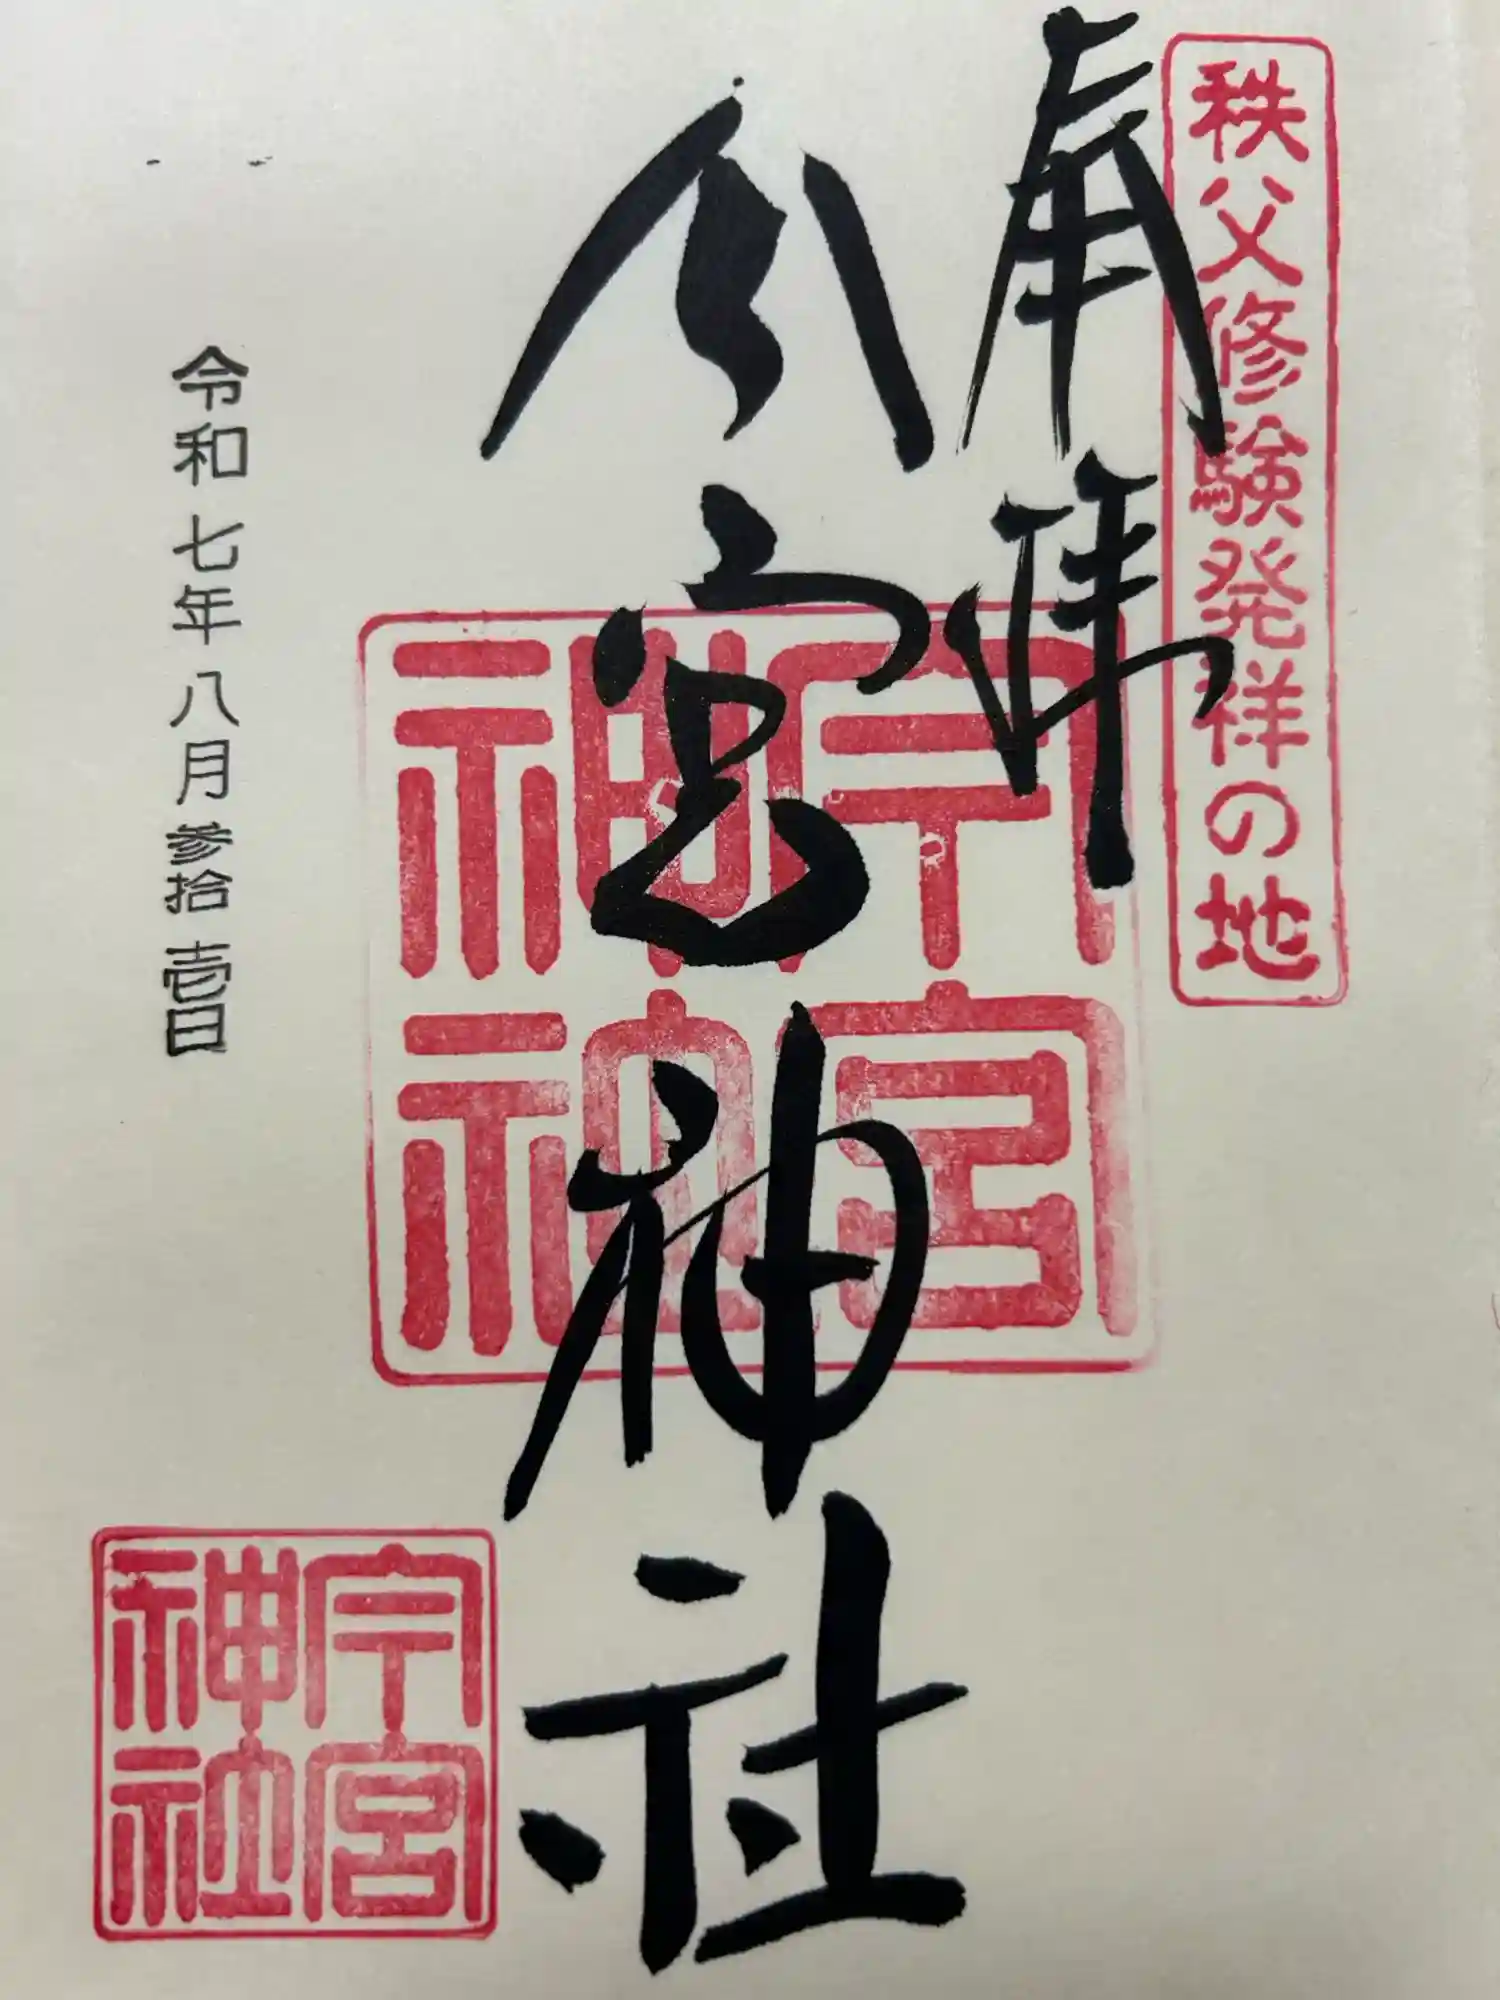 秩父修験発祥の地
奉拝
今宮神社
今宮
神社
令和七年八月参拾壱日
今宮
神社